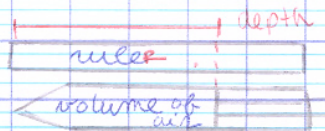 depth
ruler
volume of
air